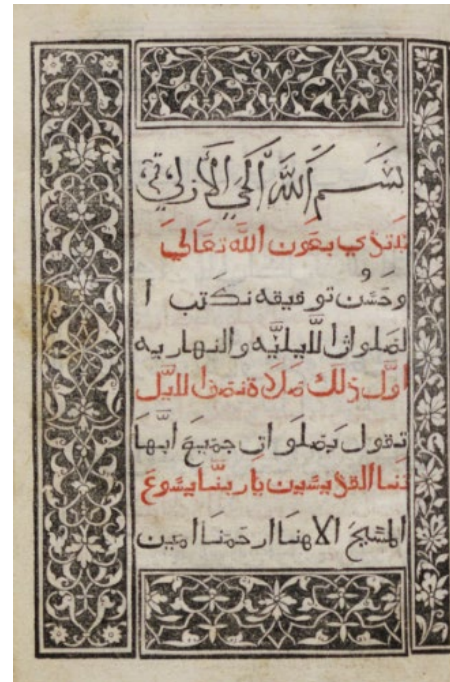 بسم الله الحي الأزلي
نبتدي بعون الله تعالي
وحسن توفيقه نكتب ا
لصلواة الليليه والنهاريه
اول ذلك صلاة نصف الليل
تقول بصلوات جميع ابها
تنا القديسين ياربنا يسوع
المسيح الاهنا ارحمنا امين